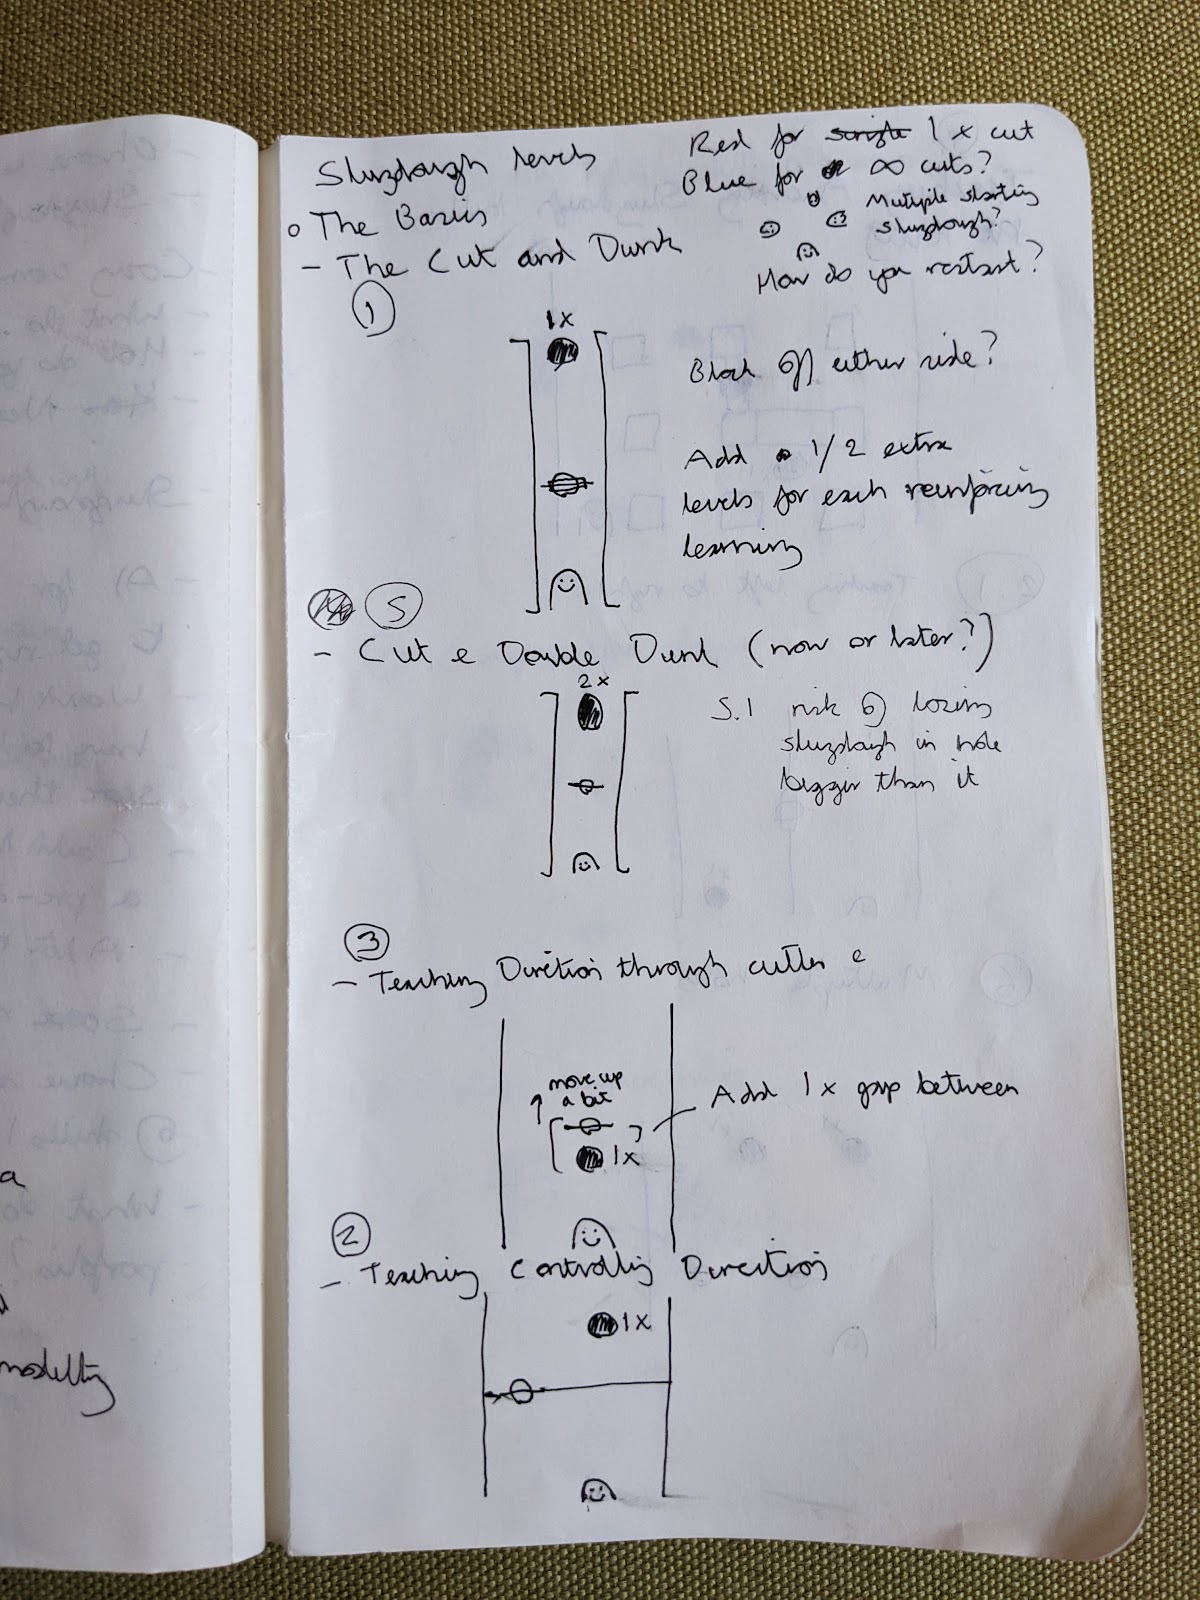 Sluzdough levels
Red for single 1 x cut
Blue for ∞ cuts?
Multiple starting
sluzdough?
How do you restart?
o The Basics
- The Cut and Dunk
1
1x
Block off either side?
Add 1/2 extra
levels for each reinforcing
learning
5
- Cut & Double Dunk (now or later?)
2x
5.1 risk of losing
sluzdough in hole
bigger than it
3
- Teaching Direction through cutter &
move up
a bit
Add 1x gap between
1x
2
- Teaching Controlling Direction
1x
a
modelling